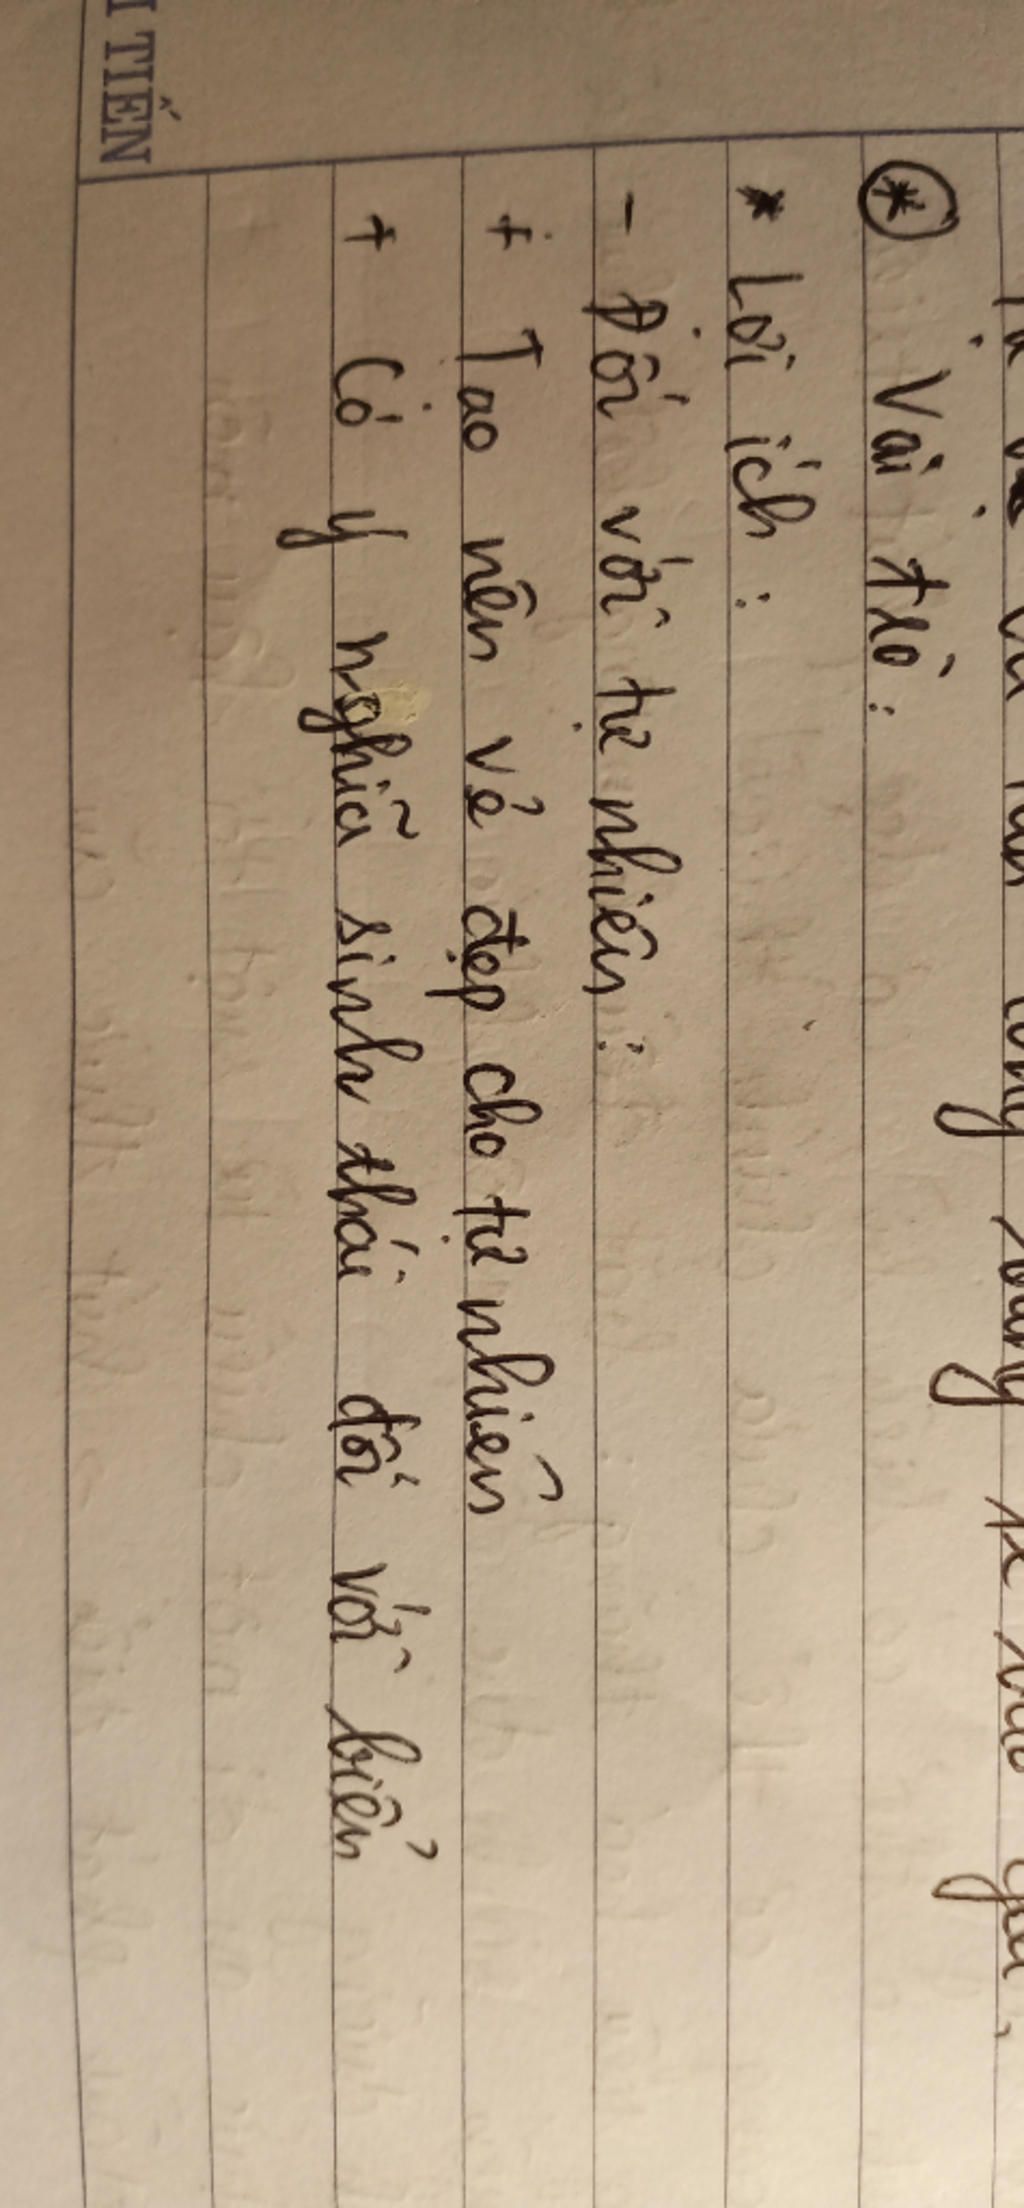 ⊛ Vai trò:
* Lợi ích:
- Đối với tự nhiên:
+ Tạo nên vẻ đẹp cho tự nhiên
+ Có ý nghĩa sinh thái đối với biển
TIẾN